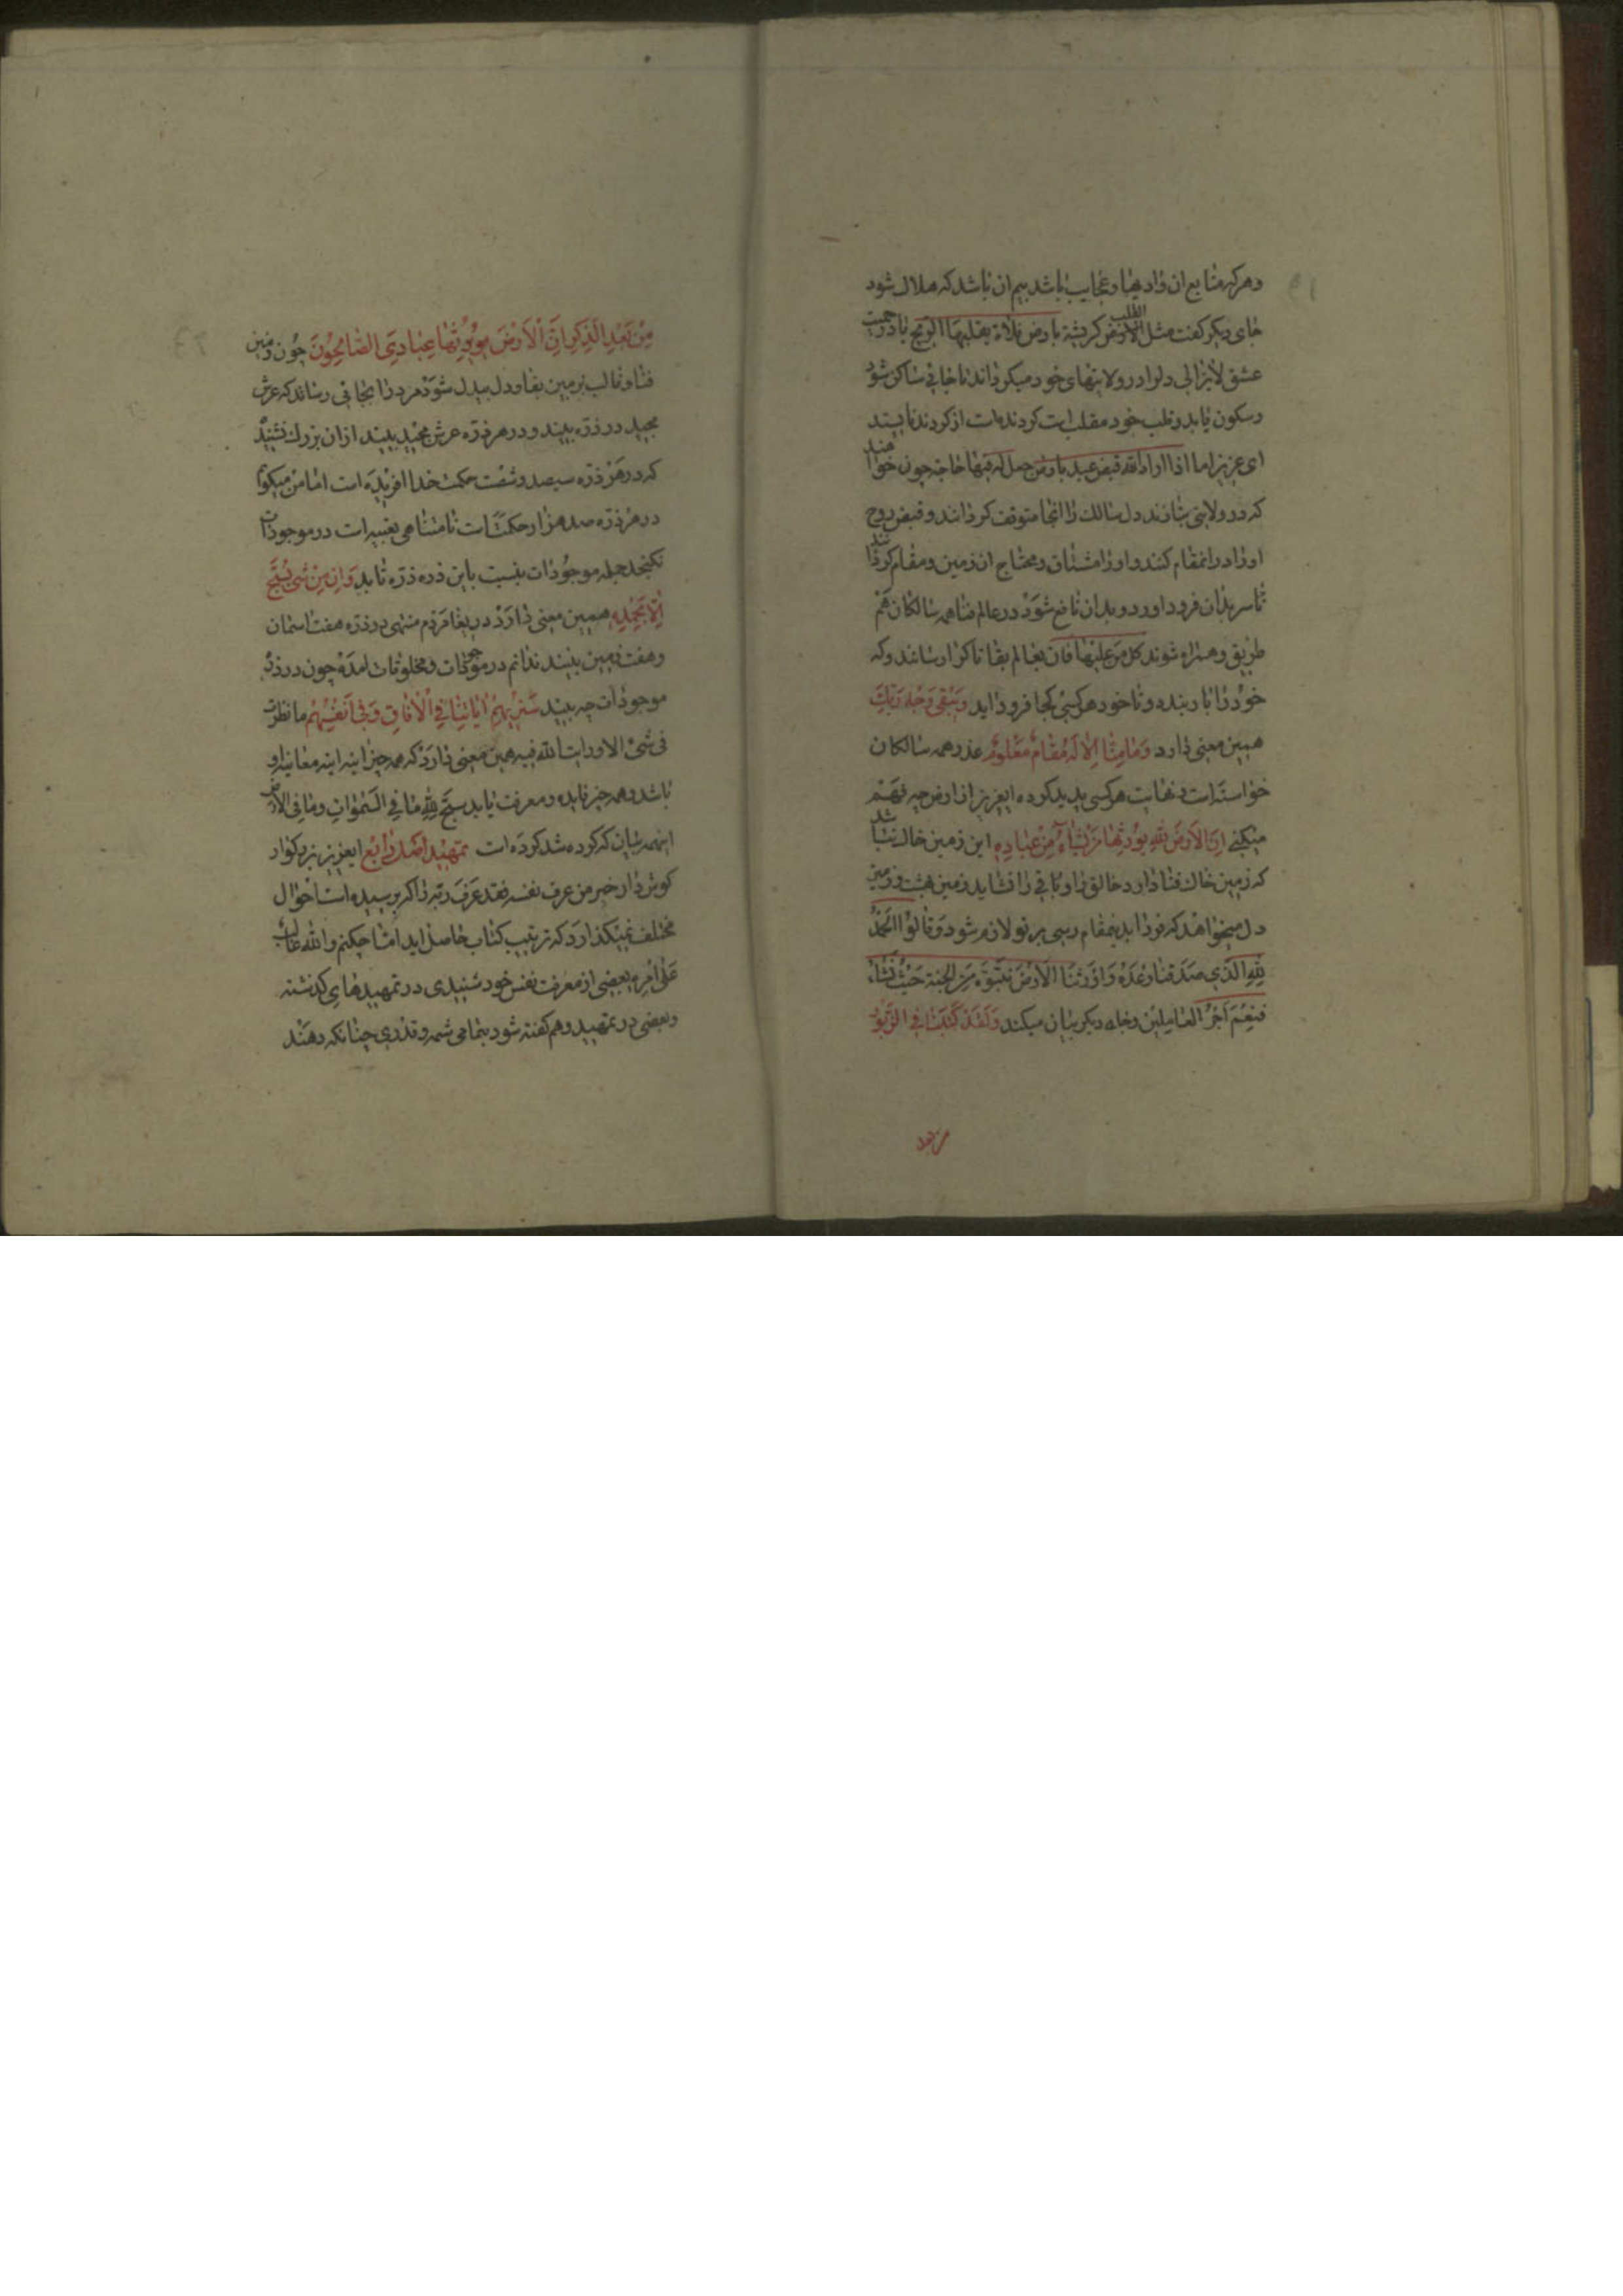 وهرکه متابع ان وادیها وعجایب باشد بیم ان باشد که هلاک شود
جای دیکر کفت مثل القلب کریشة بارض فلاة یقلبها الریح باد رحمیت
عشق لایزالی دلرا در ولایتهای خود میکرداند تا جائی ساکن شود
وسکون یابد وقلب خود مقلب است کردنده است از کردند نا بیستد
ای عزیز اما اذا اراد الله قبض عبد بارض جعل له فیها حاجة چون خواهند
که در ولایتی ستانند دل سالک را انجا متوقف کردانند وقبض روح
او را در انمقام کنند و او را مشتاق ومحتاج ان زمین ومقام کردانند
تا سر بدان فرود اورد وبدان قانع شود در عالم فنا همه سالکان هم
طریق وهمراه شوند کل من علیها فان بعالم بقا تا کرا رسانند وکه
خود را باز بیند وتا خود هرکسی کجا فرود اید ویبقی وجه ربک
همین معنی دارد وما منا الا له مقام معلوم عذر همه سالکان
خواستست ونهایت هرکسی پدید کرده ایعزیز از ارض چه فهم
میکنی ان الارض لله یورثها من یشاء من عباده این زمین خاک نباشد
که زمین خاک فنا دارد خالق را وباقی را نشاید زمین بهشت وزمین
دل میخواهد که فردا بدینمقام رسی بر تو لازم شود وقالوا الحمد
لله الذی صدقنا وعده واورثنا الارض نتبوء من الجنة حیث نشاء
فنعم اجر العاملین وجای دیکر بیان میکند ولقد کتبنا فی الزبور
من بعد
من بعد الذکر ان الارض یرثها عبادی الصالحون چون زمین
فنا وقالب بزمین بقا ودل بدل شود مرد را بجائی رساند که عرش
مجید در ذره بیند و در هر ذره عرش مجید بیند از ان بزرک نشنیدۀ
که در هر ذره سیصد وشصت حکمت خدا افریده است اما من میکویم
در هر ذره صد هزار حکمتست نامتناهی تعبیه است در موجودات
نکنجد جمله موجودات بنسبت باین ذره ذره نماید وان من شئ یسبح
الا بحمده همین معنی دارد دریغا مردم منتهی در ذره هفت اسمان
وهفت زمین بیند ندانم در موجودات ومخلوقات امده چون در ذره
موجودات چه بیند سنریهم ایاتنا فی الافاق وفی انفسهم ما نظرت
فی شئ الا ورایت الله فیه همین معنی دارد که همه چیز اینه معاینه او
باشد وهمه چیز فایده ومعرفت یابد یسبح لله ما فی السموات وما فی الارض
اینهمه بیان که کرده شد کرده است تمهید اصل رابع ایعزیز بزرکوار
کوش دار خبر من عرف نفسه فقد عرف ربه را که پرسیده است احوال
مختلف نمیکذارد که ترتیب کتاب حاصل اید اما چکنم والله غالب
علی امره بعضی از معرفت نفس خود شنیدی در تمهیدهای کذشته
وبعضی در تمهید دهم کفته شود بتمامی شمه وقدری چنانکه دهند